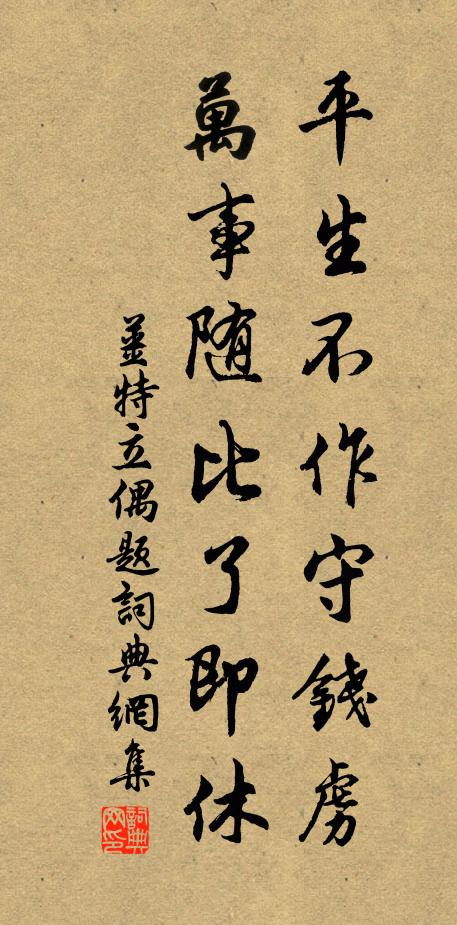 平生不作守錢虜
萬事随比了即休
姜特立偶题詞典網集
詞典网印